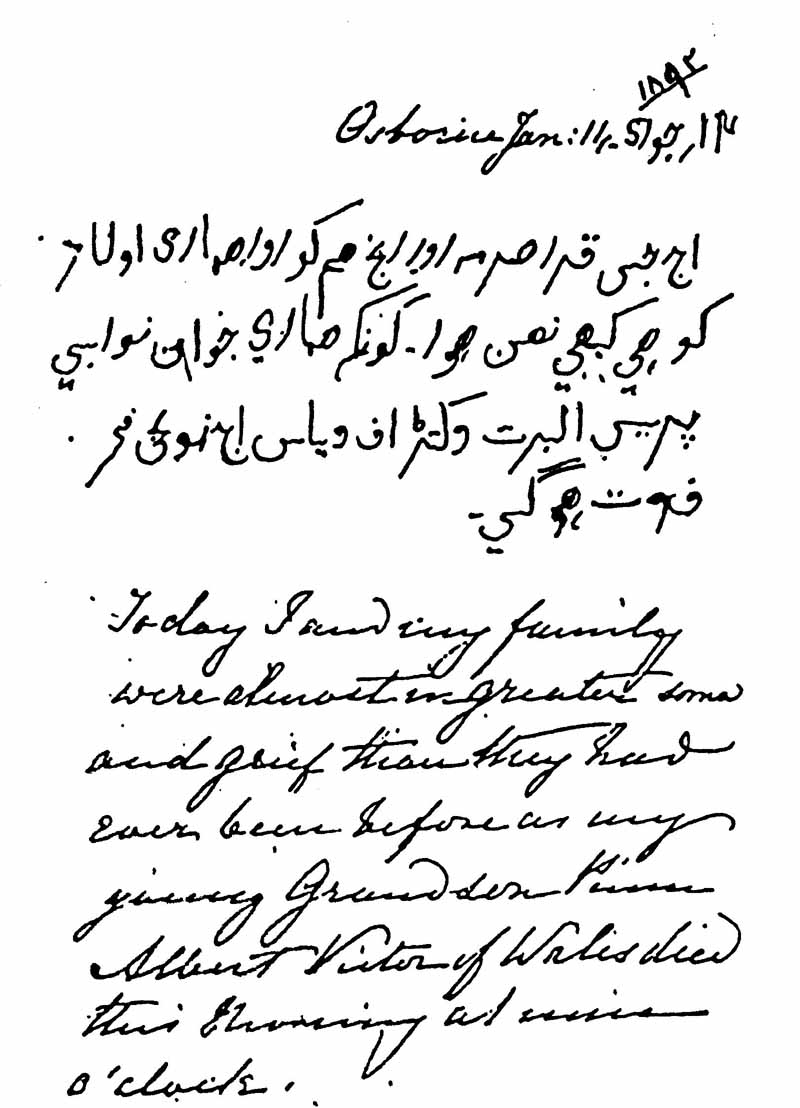 ۱۸۹۲
Osborne Jan: 14. ۱۴
اج جس قدر صدمہ اور اج ہم کو اور ہماری اولاد
کو ہی کبھی نھن ہوا۔ کونکہ ہماری جوان نواسی
پرنس البرت وکٹر اف ویلس اج نو بجی فجر
فوت ہوگی۔
Today I and my family
were almost in greater
and grief than they had
ever been before as my
young Grandson Prince
Albert Victor of Wales died
this Morning at nine
o'clock.